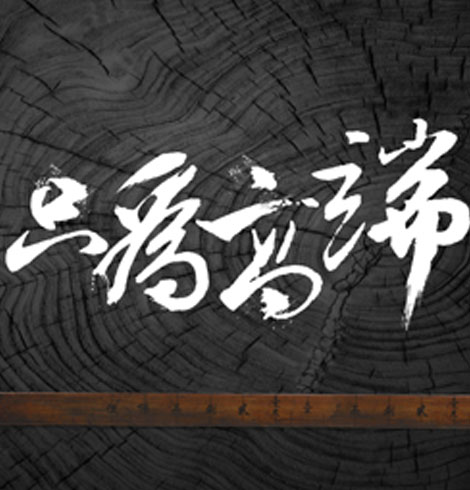 只為高端